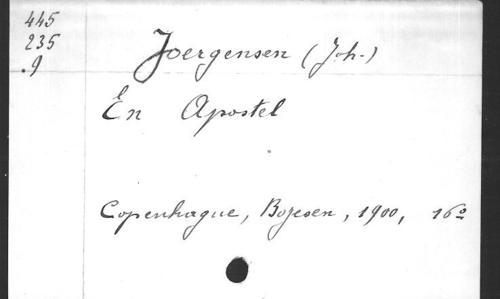 445
235
.9
Joergensen (Joh.)
En Apostel
Copenhague, Bojesen, 1900, 16º